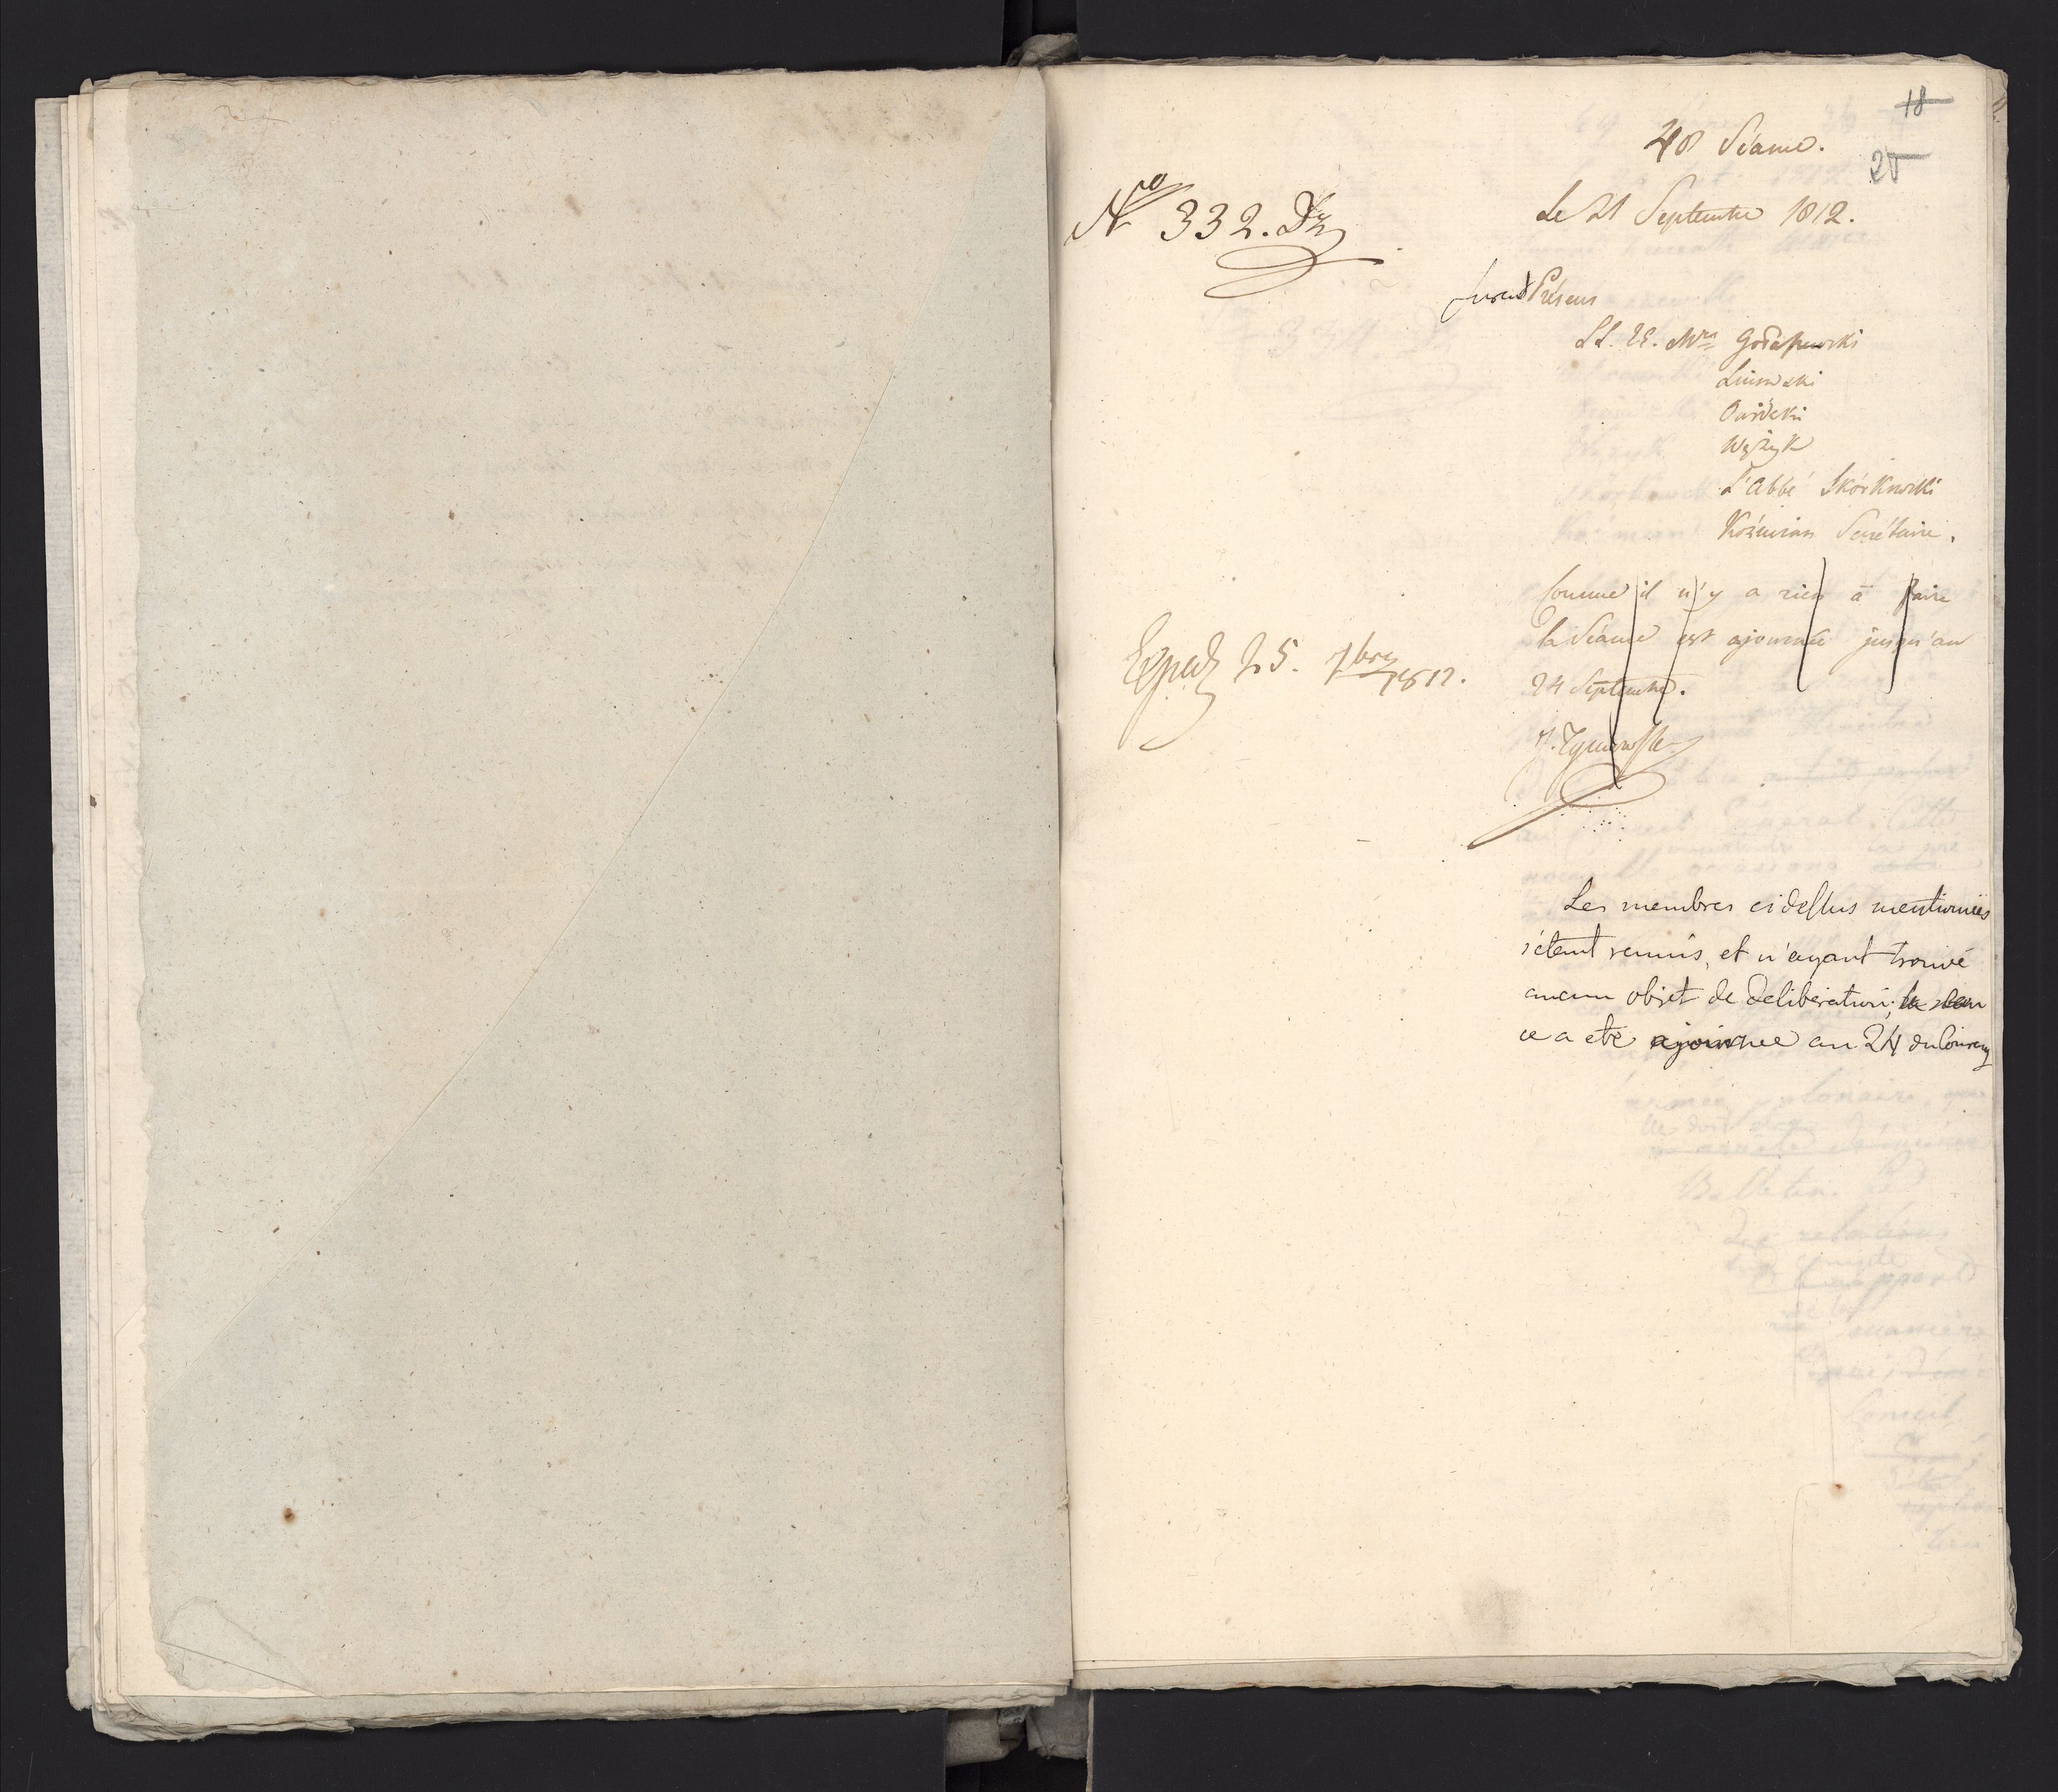 18
48 Séance.
25
No 332. Dz
Le 21 Septembre 1812.
furent Présens
LL. EE. Mrs Gołaszewski
Linowski
Ossoliński
Wężyk
L'Abbé Skórkowski
Koźmian Secrétaire.
Comme il n'y a rien à faire
la Séance est ajournée jusqu'au
24 Septembre.
Exped 25. 7bra 1812.
Les membres ci dessus mentionnés
s'étant reunis, et n'ayant trouvé
aucun objet de deliberation; la sean
ce a eté ajournee au 24 du Courang